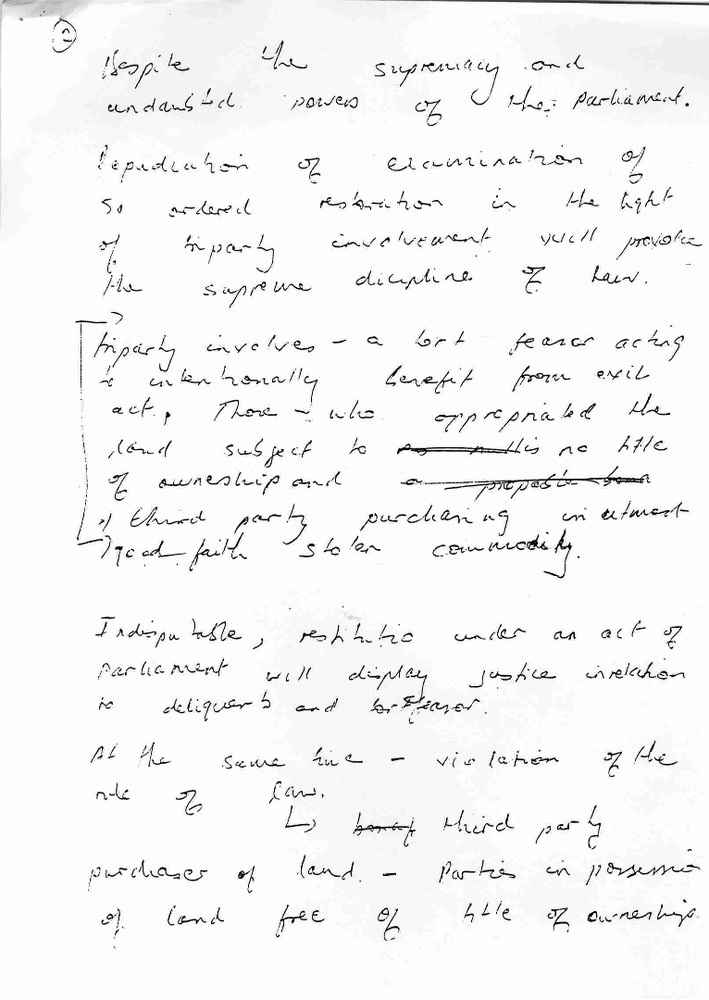 2
Despite the supremacy and
undaubtd powers of the parliament.
Repudiation of examination of
so ordered restoration in the light
of triparty involvement will provoke
the supreme dicipline of law.
triparty involves - a tort feasor acting
to intentionally benefit from evil
act, Those - who appropriated the
land subject to no title
of ownership and
third party purchasing in utmost
good faith stolen commodity.
Indisputable, restitutio under an act of
parliament will display justice inrelation
to deliquents and tortfeasor.
At the same time - violation of the
rule of law.
↳ third party
purchaser of land. - Parties in possession
of land free of title of ownership.